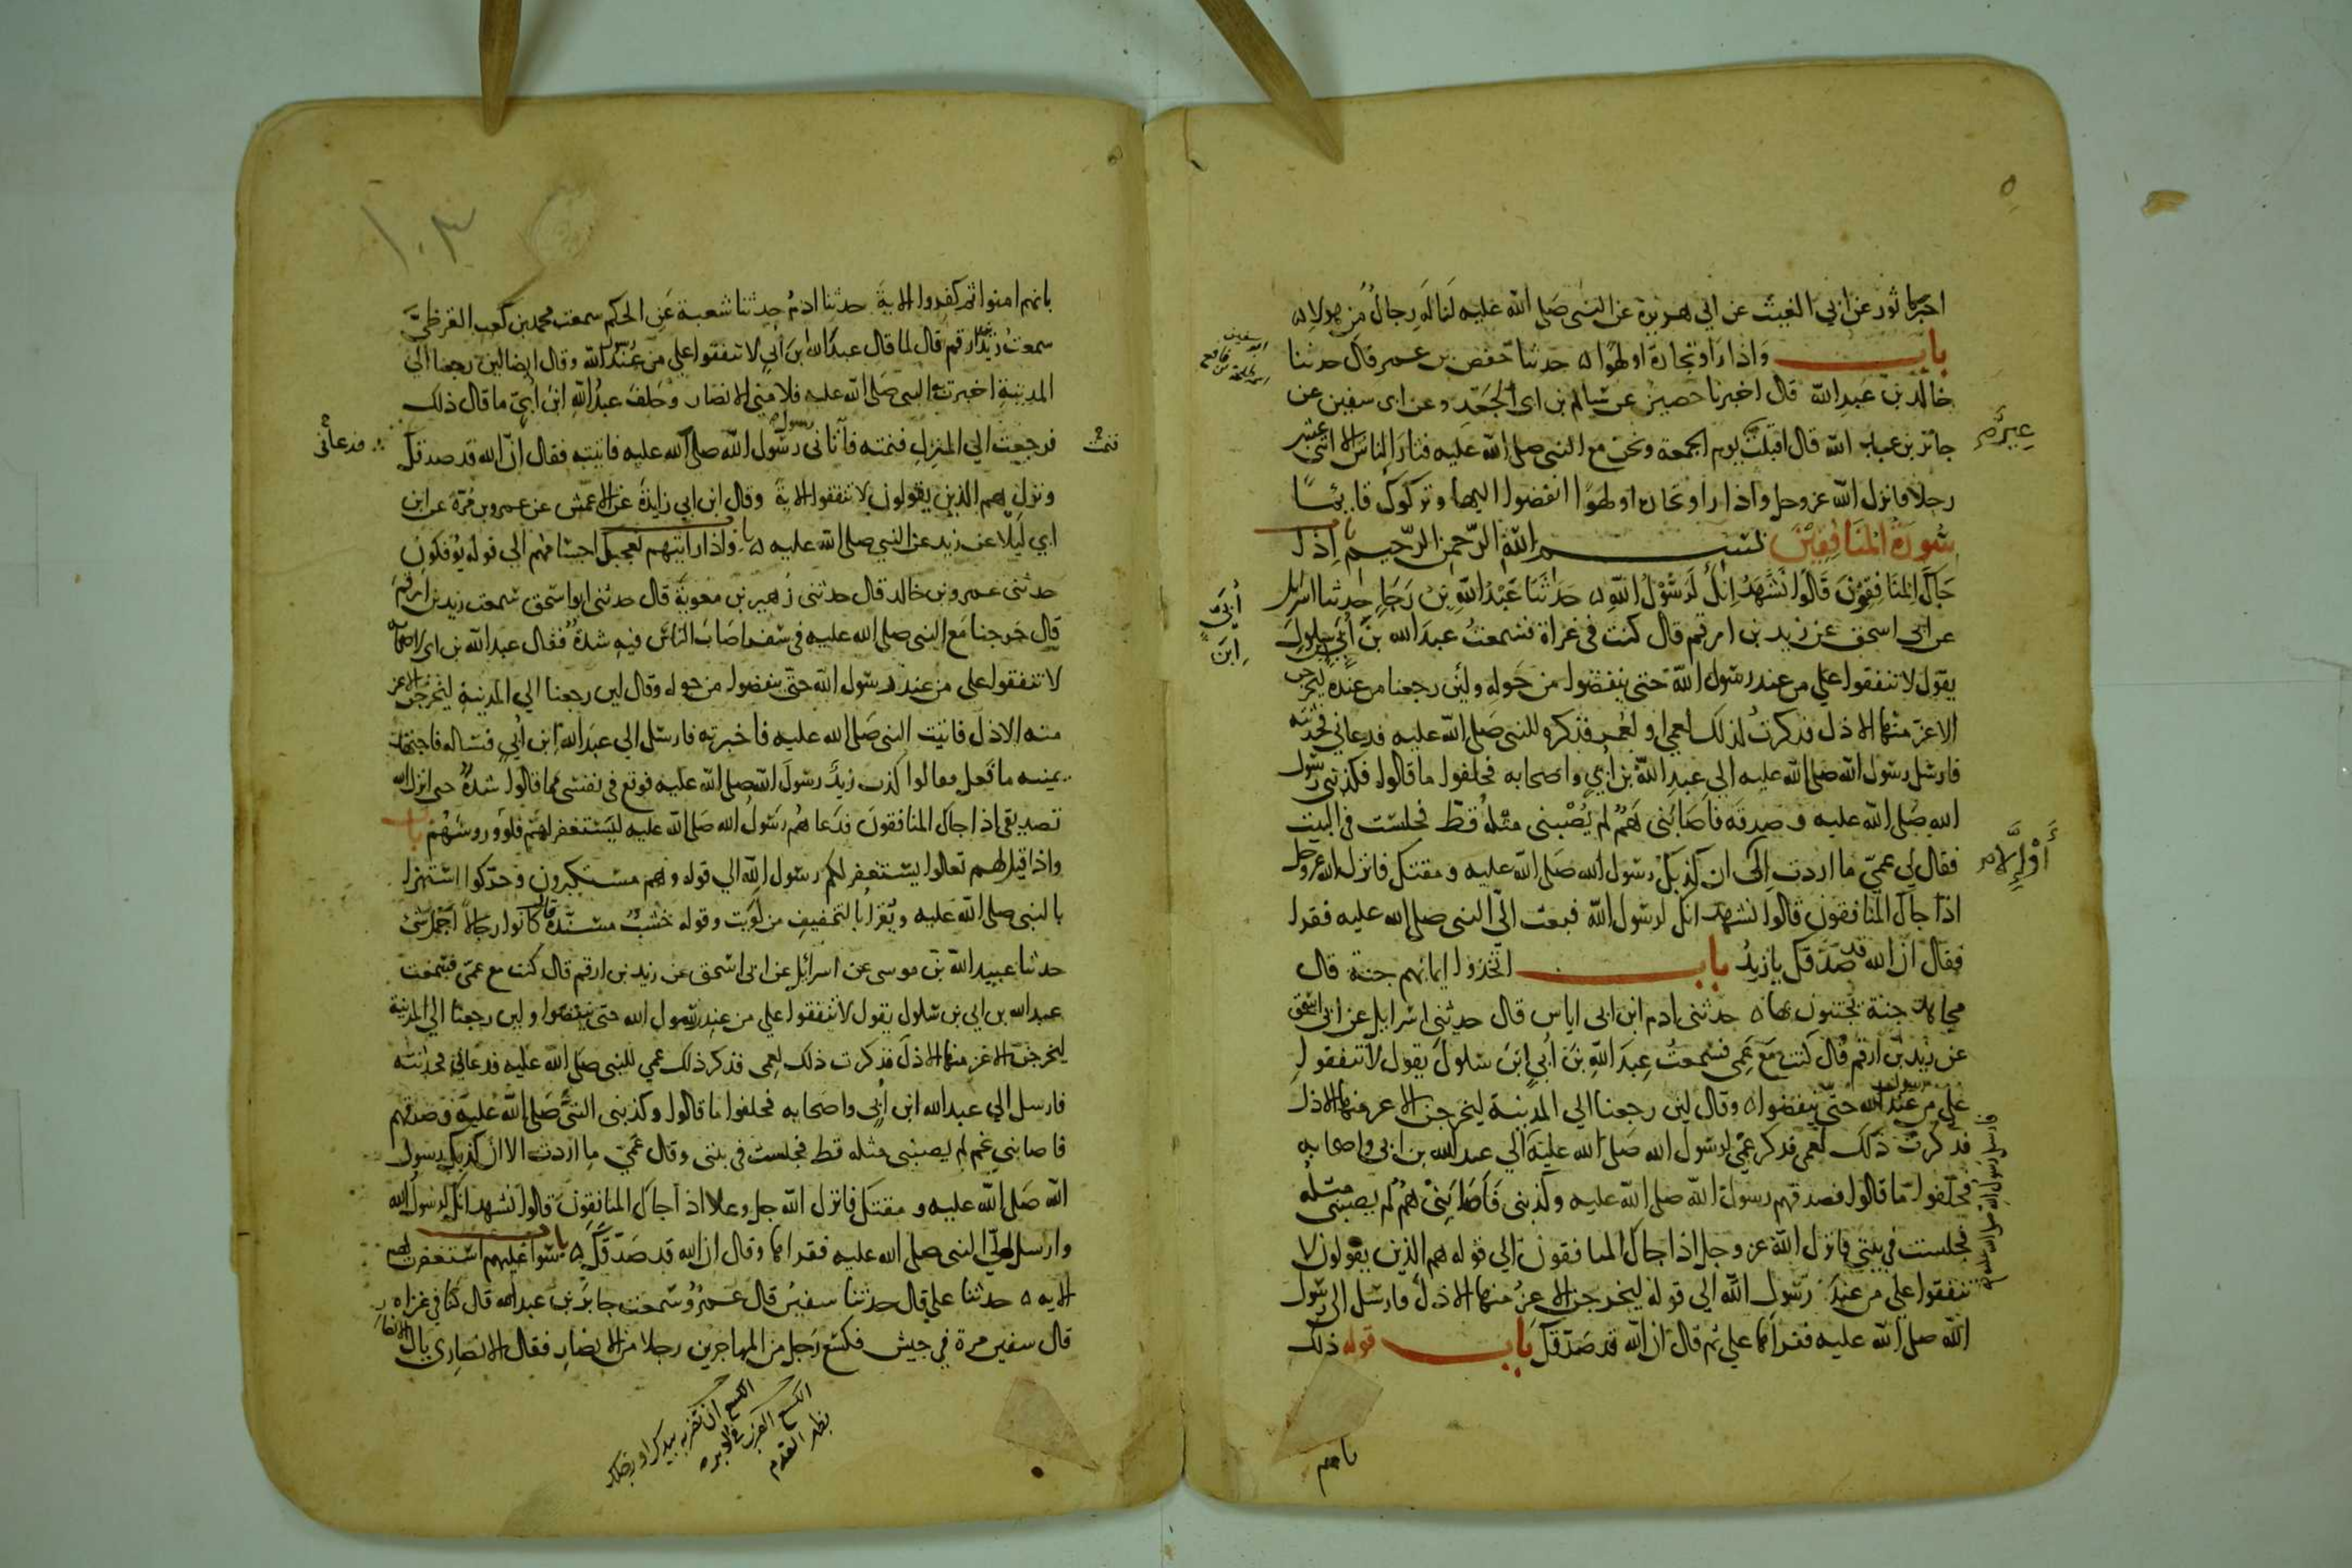 اخبرنا ثور عن ابي الغيث عن ابي هريرة عن النبي صلى الله عليه لناله رجال من هولاء
باب واذا راوا تجارة او لهوا حدثنا حفص بن عمر قال حدثنا
خالد بن عبد الله قال اخبرنا حصين عن سالم بن ابي الجعد وعن ابي سفين عن
جابر بن عبد الله قال اقبلت عير يوم الجمعة ونحن مع النبي صلى الله عليه فثار الناس الا اثنى عشر
رجلا فانزل الله عز وجل واذا راوا تجارة او لهوا انفضوا اليها وتركوك قائما
سورة المنافقين بسم الله الرحمن الرحيم باب اذا
جاك المنافقون قالوا نشهد انك لرسول الله حدثنا عبد الله بن رجا حدثنا اسرايل
عن ابي اسحق عن زيد بن ارقم قال كنت في غزاة فسمعت عبد الله بن ابي بن سلول
يقول لا تنفقوا على من عند رسول الله حتى ينفضوا من حوله ولئن رجعنا من عنده ليخرجن
الاعز منها الاذل فذكرت ذلك لعمي او لعمر فذكره للنبي صلى الله عليه فدعاني فحدثته
فارسل رسول الله صلى الله عليه الى عبد الله بن ابي واصحابه فحلفوا ما قالوا فكذبني رسول
الله صلى الله عليه وصدقه فاصابني هم لم يصبني مثله قط فجلست في البيت
فقال لي عمي ما اردت الى ان كذبك رسول الله صلى الله عليه ومقتك فانزل الله عز وجل
اذا جاك المنافقون قالوا نشهد انك لرسول الله فبعث الي النبي صلى الله عليه فقرا
فقال ان الله قد صدقك يا زيد باب اتخذوا ايمانهم جنة قال
مجاهد جنة يجتنون بها حدثني ادم ابن ابي اياس قال حدثني اسرايل عن ابي اسحق
عن زيد بن ارقم قال كنت مع عمي فسمعت عبد الله بن ابي ابن سلول يقول لا تنفقوا
على من عند رسول الله حتى ينفضوا وقال لين رجعنا الي المدينة ليخرجن الاعز منها الاذل
فذكرت ذلك لعمي فذكر عمي لرسول الله صلى الله عليه الي عبد الله بن ابي واصحابه
فحلفوا ما قالوا فصدقهم رسول الله صلى الله عليه وكذبني فاصابني هم لم يصبني مثله
فجلست في بيتي فانزل الله عز وجل اذا جاك المنافقون الي قوله هم الذين يقولون لا
تنفقوا على من عند رسول الله الي قوله ليخرجن الاعز منها الاذل فارسل الي رسول
الله صلى الله عليه فقراها علي ثم قال ان الله قد صدقك باب قوله ذلك
بانهم
عير
ابي
ابن
فارسل رسول الله صلى الله عليه
١٠٣
بانهم امنوا ثم كفروا الاية حدثنا ادم حدثنا شعبة عن الحكم سمعت محمد بن كعب القرظي
سمعت زيد بن ارقم قال لما قال عبد الله ابن ابي لا تنفقوا على من عند رسول الله وقال ايضا لين رجعنا الي
المدينة اخبرت النبي صلى الله عليه فلامني الانصار وحلف عبد الله ابن ابي ما قال ذلك
فرجعت الي المنزل فنمته فاتاني رسول رسول الله صلى الله عليه فاتيته فقال ان الله قد صدقك
ونزل هم الذين يقولون لا تنفقوا الاية وقال ابن ابي زايدة عن الاعمش عن عمرو بن مرة عن ابن
ابي ليلا عن زيد عن النبي صلى الله عليه باب واذا رايتهم تعجبك اجسامهم الى قوله يوفكون
حدثني عمرو بن خالد قال حدثني زهير بن معوية قال حدثني ابو اسحق سمعت زيد بن ارقم
قال خرجنا مع النبي صلى الله عليه في سفر اصاب الناس فيه شدة فقال عبد الله بن ابي لاصحابه
لا تنفقوا على من عند رسول الله حتى ينفضوا من حوله وقال لين رجعنا الي المدينة ليخرجن الاعز
منها الاذل فاتيت النبي صلى الله عليه فاخبرته فارسل الي عبد الله ابن ابي فساله فاجتهد
يمينه ما فعل فقالوا كذب زيد رسول الله صلى الله عليه فوقع في نفسي مما قالوا شدة حتى انزل الله
تصديقي اذا جاك المنافقون فدعاهم رسول الله صلى الله عليه ليستغفر لهم فلووا روسهم باب
واذا قيل لهم تعالوا يستغفر لكم رسول الله الي قوله وهم مستكبرون وحركوا استهزا
بالنبي صلى الله عليه ويقرا بالتخفيف من لويت وقوله خشب مسندة قال كانوا رجالا اجمل شي
حدثنا عبيد الله بن موسى عن اسرائيل عن ابي اسحق عن زيد بن ارقم قال كنت مع عمي فسمعت
عبد الله بن ابي بن سلول يقول لا تنفقوا على من عند رسول الله حتى ينفضوا ولين رجعنا الي المدينة
ليخرجن الاعز منها الاذل فذكرت ذلك لعمي فذكر ذلك عمي للنبي صلى الله عليه فدعاني فحدثته
فارسل الي عبد الله ابن ابي واصحابه فحلفوا ما قالوا وكذبني النبي صلى الله عليه وصدقهم
فاصابني غم لم يصبني مثله قط فجلست في بيتي وقال عمي ما اردت الا ان كذبك رسول
الله صلى الله عليه ومقتك فانزل الله جل وعلا اذا جاك المنافقون قالوا نشهد انك لرسول الله
وارسل الي النبي صلى الله عليه فقراها وقال ان الله قد صدقك باب سوا عليهم استغفرت لهم
الايه حدثنا علي قال حدثنا سفين قال عمرو سمعت جابر بن عبد الله قال كنا في غزاه
قال سفين مرة في جيش فكسع رجل من المهاجرين رجلا من الانصار فقال الانصاري يال الانصار
فنمت
فدعاني
الكسع ان تضرب بيدك او برجلك
الكسع الضرب في الدبر
بظهر القدم